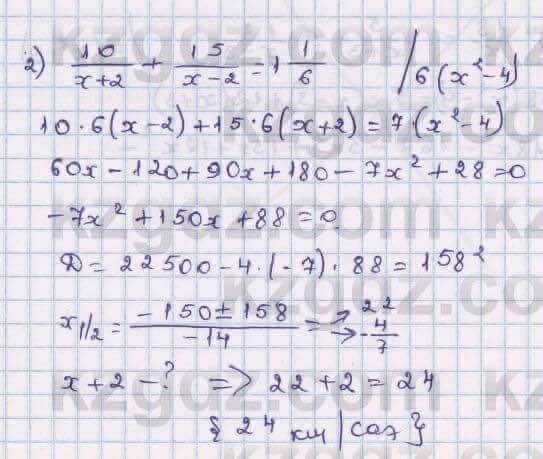 2) 10/(x+2) + 15/(x-2) = 1 1/6 /6(x²-4)
10·6(x-2)+15·6(x+2)=7·(x²-4)
60x-120+90x+180-7x²+28=0
-7x²+150x+88=0
D=22500-4·(-7)·88=158²
x1/2 = (-150±158)/(-14) = → 22 → -4/7
x+2-? => 22+2=24
{24 км/сағ}
kzgdz.com